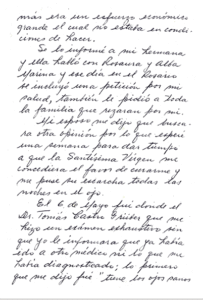 más era un esfuerzo económico
grande el cual no estaba en condi-
ciones de hacer.
Se lo informé a mi hermana
y ella habló con Rosaura y Alba
Marina y ese día en el Rosario
se incluyó una petición por mi
salud, también le pedió a toda
la familia que rezaran por mi.
Mi esposo me dijo que busca-
ra otra opinión por lo que esperé
una semana para dar tiempo
a que la Santísima Virgen me
concediera el favor de curarme y
me puse su escarcha todas las
noches en el ojo.
El 6 de Mayo fui donde el
Dr. Tomás Castro que me
hizo un exámen exhaustivo sin
que yo le informara que ya había
ido a otro médico ni lo que me
había diagnosticado; lo primero
que me dijo fué "tiene los ojos sanos